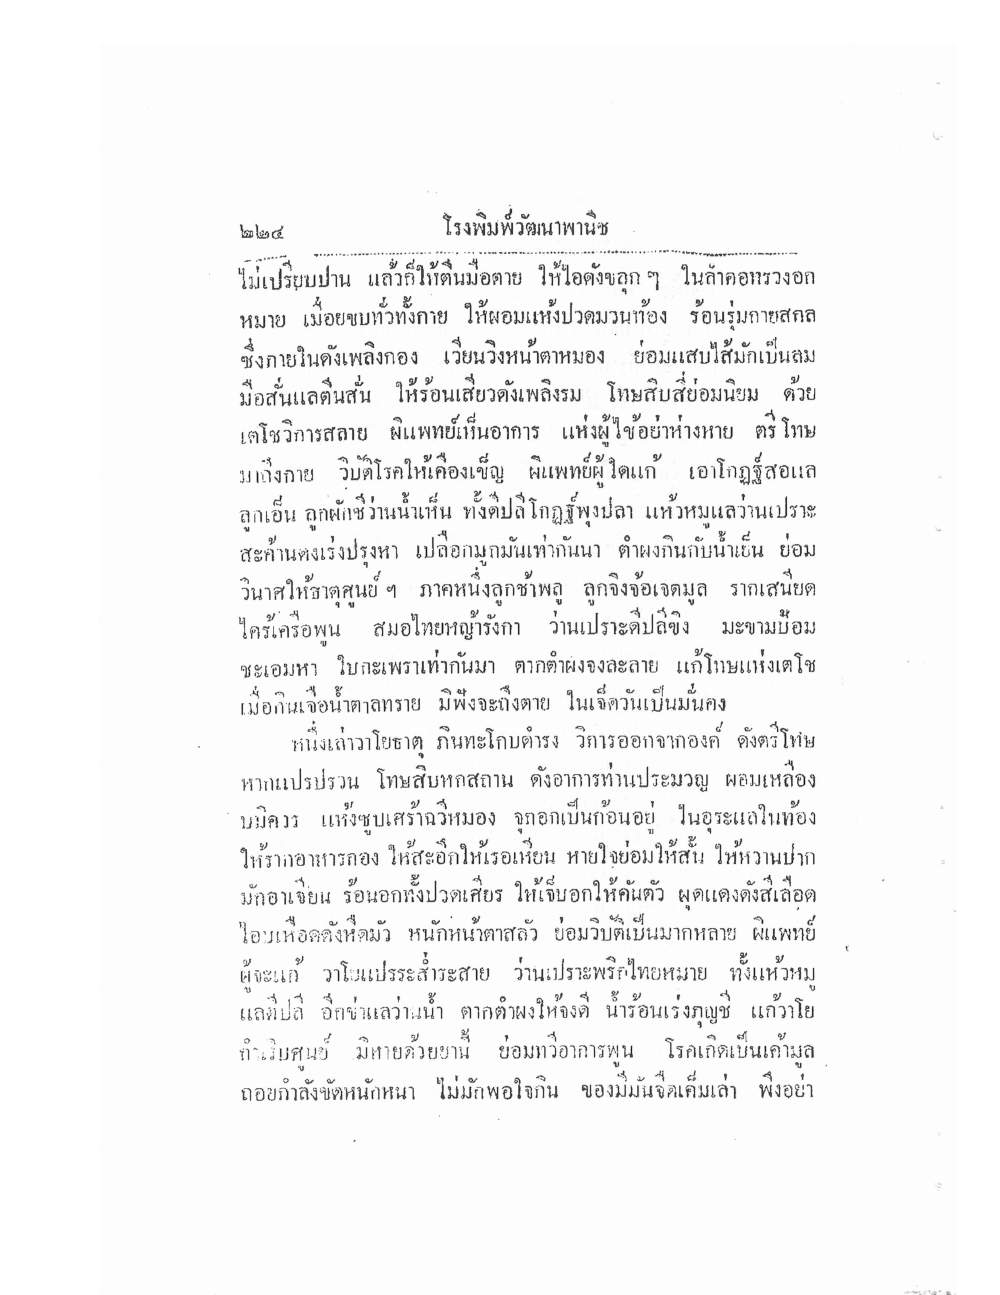 ๒๒๔ โรงพิมพ์วัฒนาพานิช
ไม่เปรียบปาน แล้วก็ให้ตีนมือตาย ให้ไอดังขลุก ๆ ในลำคอทรวงอก
หมาย เมื่อยขบทั่วทั้งกาย ให้ผอมแห้งปวดมวนท้อง ร้อนรุ่มกายสกล
ซึ่งภายในดังเพลิงกอง เวียนวิงหน้าตาหมอง ย่อมแสบไส้มักเป็นลม
มือสั่นแลตีนสั่น ให้ร้อนเสียวดังเพลิงรม โทษสิบสี่ย่อมนิยม ด้วย
เตโชวิการสลาย ผิแพทย์เห็นอาการ แห่งผู้ไข้อย่าห่างหาย ตรีโทษ
มาถึงกาย วิบัติโรคให้เคืองเข็ญ ผิแพทย์ผู้ใดแก้ เอาโกฏฐ์สอแล
ลูกเอ็น ลูกผักชีว่านน้ำเห็น ทั้งดีปลีโกฏฐ์พุงปลา แห้วหมูแลว่านเปราะ
สะค้านดงเร่งปรุงหา เปลือกมูกมันเท่ากันนา ตำผงกินกับน้ำเย็น ย่อม
วินาสให้ธาตุศูนย์ ฯ ภาคหนึ่งลูกช้าพลู ลูกจิงจ้อเจตมูล รากเสนียด
ไคร้เครือพูน สมอไทยหญ้ารังกา ว่านเปราะดีปลีขิง มะขามป้อม
ชะเอมหา ใบกะเพราเท่ากันมา ตากตำผงจงละลาย แก้โทษแห่งเตโช
เมื่อกินเจือน้ำตาลทราย มิฟังจะถึงตาย ในเจ็ดวันเป็นมั่นคง
หนึ่งเล่าวาโยธาตุ ภินทะโกบดำรง วิการออกจากองค์ ดังตรีโทษ
หากแปรปรวน โทษสิบหกสถาน ดังอาการท่านประมวญ ผอมเหลือง
บมิควร แห้งซูบเศร้าฉวีหมอง จุกอกเป็นก้อนอยู่ ในอุระแลในท้อง
ให้รากอาหารกอง ให้สะอึกให้เรอเหียน หายใจย่อมให้สั้น ให้หวานปาก
มักอาเจียน ร้อนอกทั้งปวดเศียร ให้เจ็บอกให้คันตัว ผุดแดงดังสีเลือด
ไอบเหือดดังหืดมัว หนักหน้าตาสลัว ย่อมวิบัติเป็นมากหลาย ผิแพทย์
ผู้จะแก้ วาโยแปรระส่ำระสาย ว่านเปราะพริกไทยหมาย ทั้งแห้วหมู
แลดีปลี อีกข่าแลว่านน้ำ ตากตำผงให้จงดี น้ำร้อนเร่งภุญชี แก้วาโย
กำเริบศูนย์ มิหายด้วยยานี้ ย่อมทวีอาการพูน โรคเกิดเป็นเค้ามูล
ถอยกำลังขัดหนักหนา ไม่มักพอใจกิน ของมีมันจืดเค็มเล่า พึงอย่า